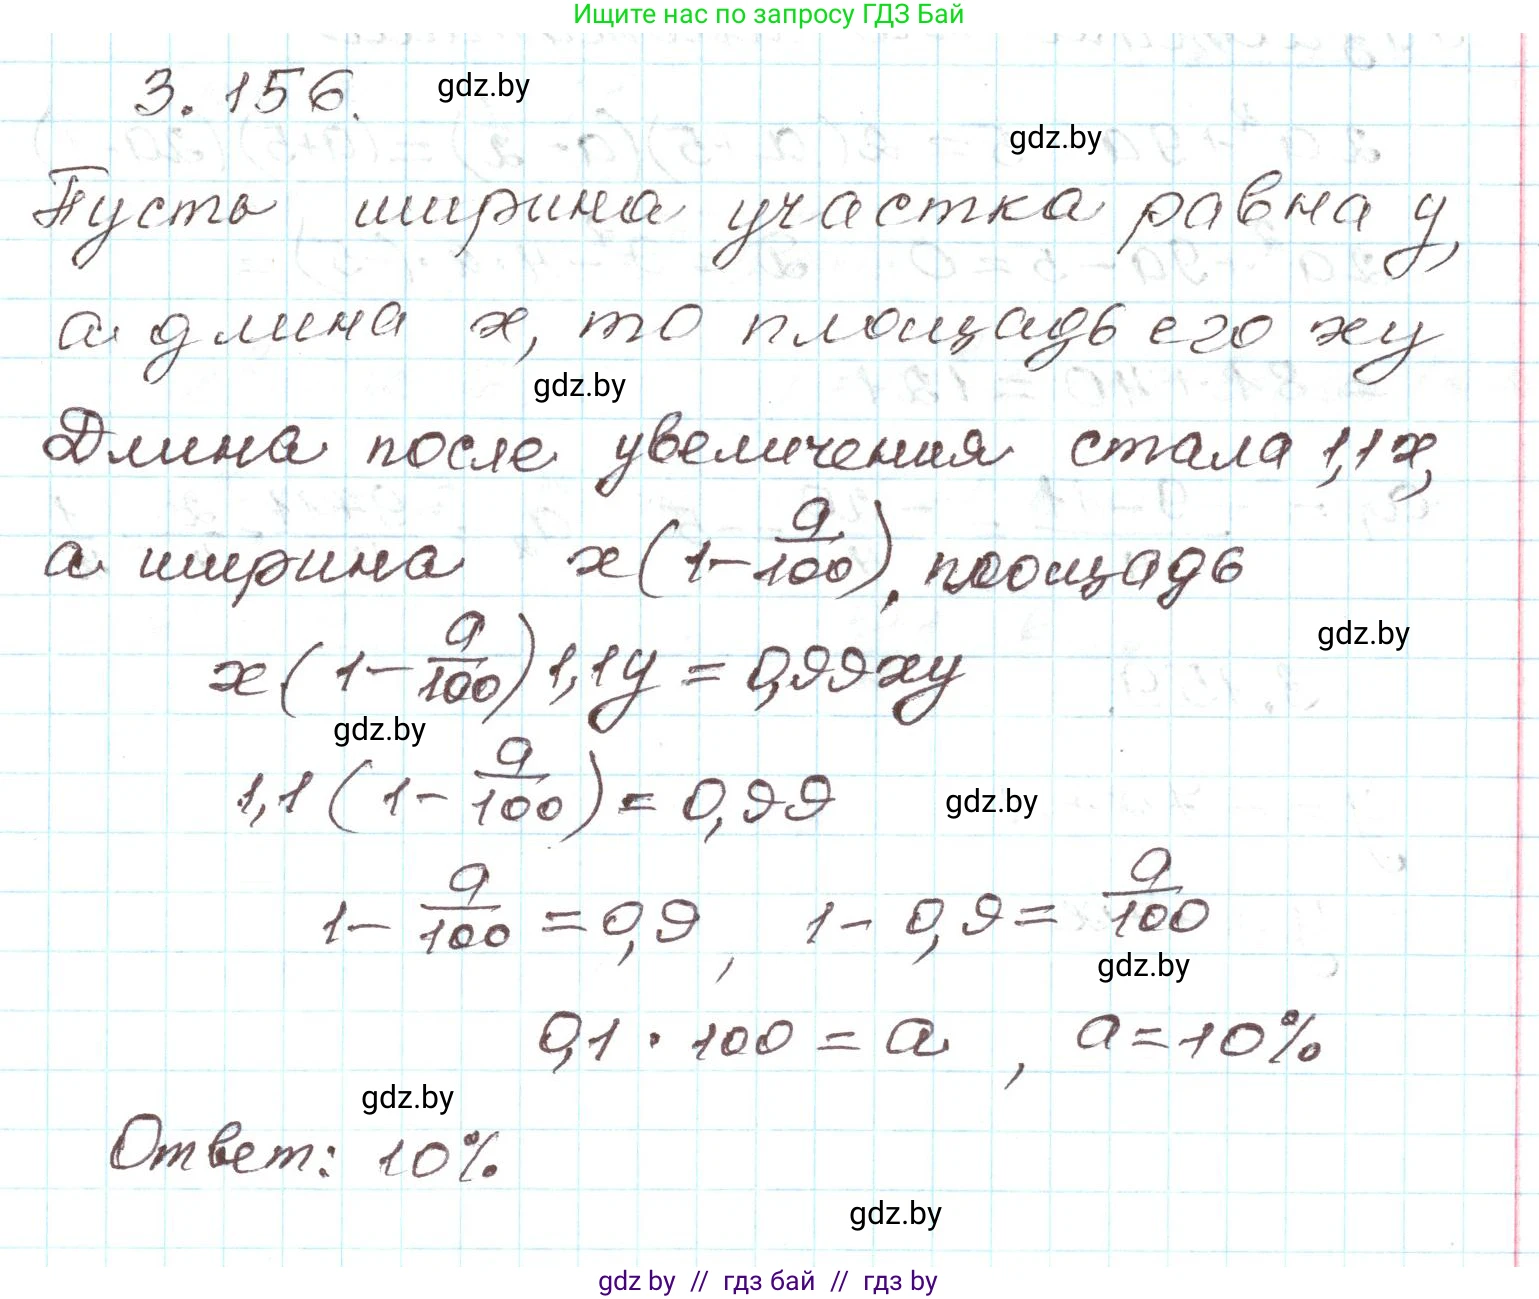 Ищите нас по запросу ГДЗ Бай
3.156.
gdz.by
gdz.by
Пусть ширина участка равна y,
а длина x, то площадь его xy
gdz.by
Длина после увеличения стала 1,1x,
а ширина x(1-a/100), площадь
gdz.by
x(1-a/100)1,1y=0,99xy
gdz.by
1,1(1-a/100)=0,99
gdz.by
1-a/100=0,9, 1-0,9=a/100
gdz.by
0,1·100=a, a=10%
gdz.by
Ответ: 10%
gdz.by
gdz by // гдз бай // gdz by